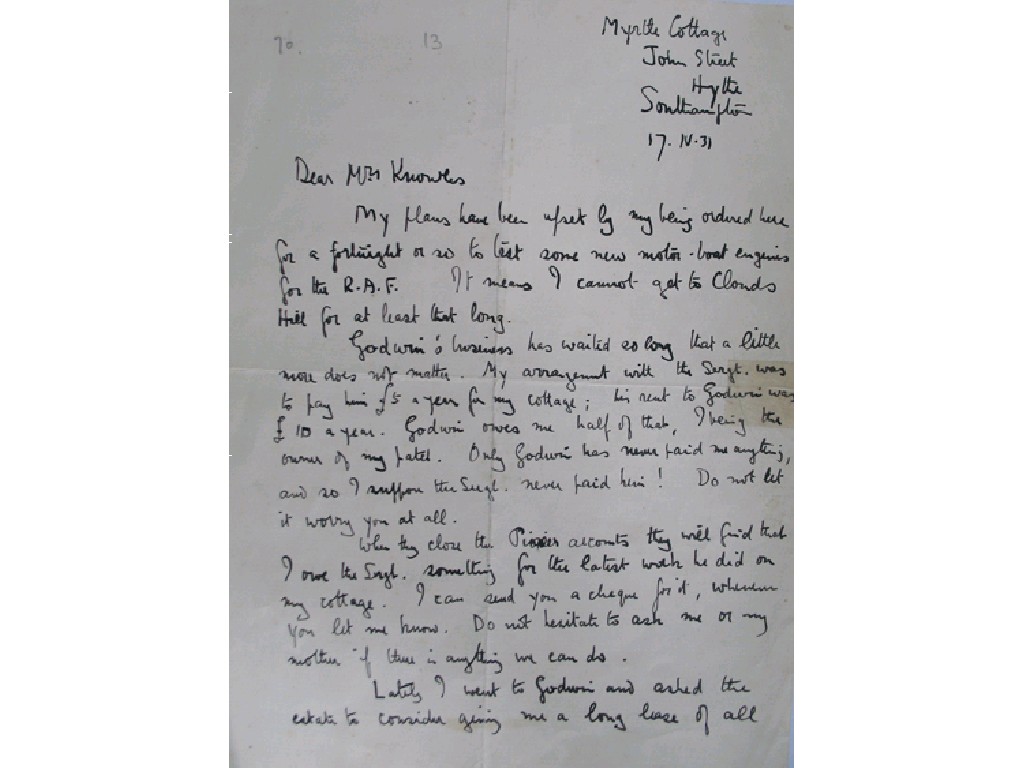 70.
13
Myrtle Cottage
John Street
Hythe
Southampton
17. IV. 31
Dear Mrs Knowles
My plans have been upset by my being ordered here
for a fortnight or so to test some new motor-boat engines
for the R.A.F. It means I cannot get to Clouds
Hill for at least that long.
Godwin's business has waited so long that a little
more does not matter. My arrangement with the Sergt. was
to pay him £5 a year for my cottage; his rent to Godwin was
£10 a year. Godwin owes me half of that, I being the
owner of my patch. Only Godwin has never paid me anything,
and so I suppose the Sergt. never paid him! Do not let
it worry you at all.
When they close the accounts they will find that
I owe the Sergt. something for the latest work he did on
my cottage. I can send you a cheque for it, whenever
you let me know. Do not hesitate to ask me or my
mother if there is anything we can do.
Lately I went to Godwin and asked the
estate to consider giving me a long lease of all